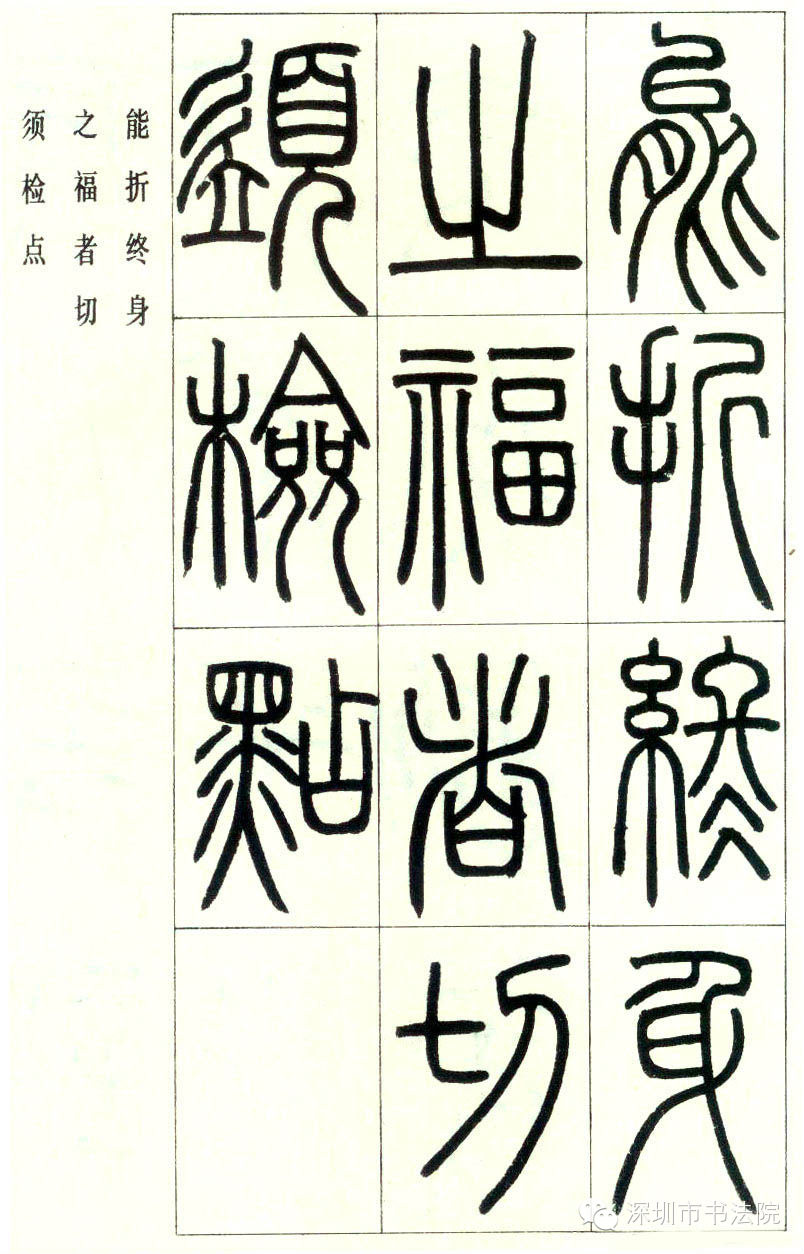 能折終身
之福者切
須檢點
能折终身
之福者切
须检点
深圳市书法院